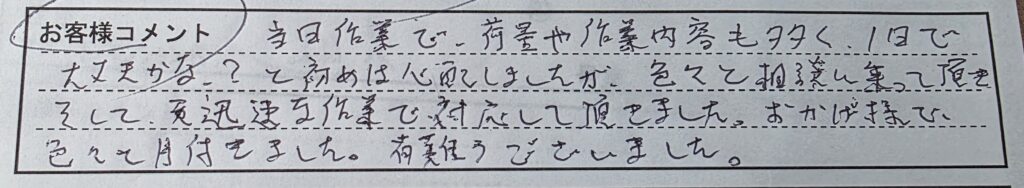 お客様コメント 当日作業で、荷量や作業内容も多く、1日で
大丈夫かな、?と初めは心配しましたが、色々と相談に乗って頂き
そして、迅速な作業で対応して頂きました。おかげ様で、
色々と片付きました。有難うございました。